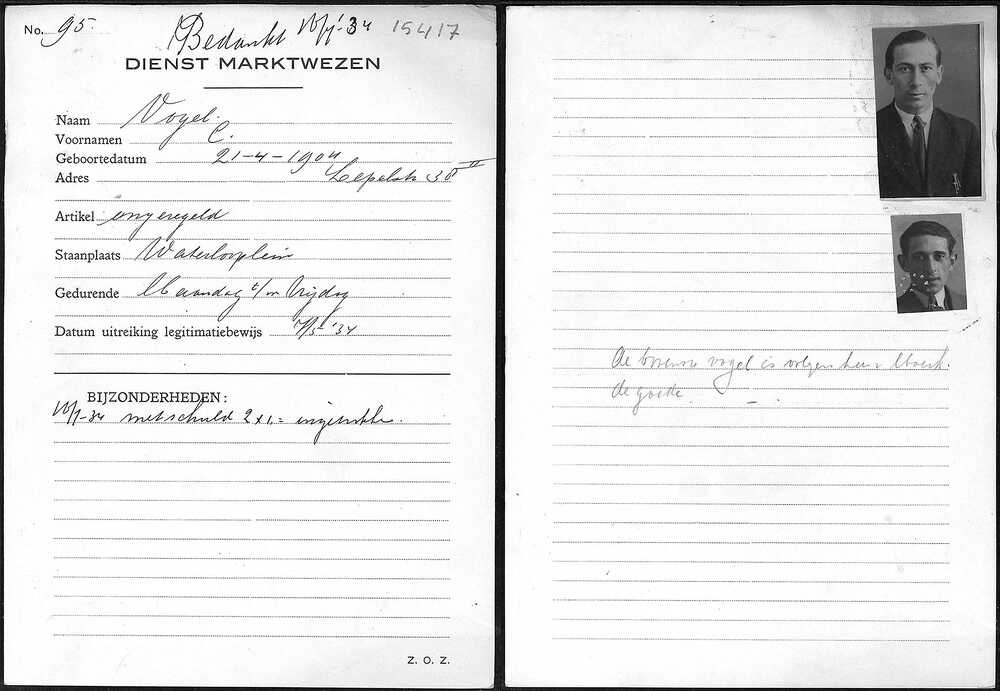 No. 95.
Bedankt 10/7-'34 15417
DIENST MARKTWEZEN
Naam Vogel.
Voornamen C.
Geboortedatum 21-4-1904
Adres Lepelstr 30 II
Artikel ongeregeld
Staanplaats Waterlooplein
Gedurende Maandag t/m Vrijdag
Datum uitreiking legitimatiebewijs 7/5 '34
BIJZONDERHEDEN:
10/7-34 met schuld 2 x 1.=
Z. O. Z.
de bovenste vogel is volgens
de goede.